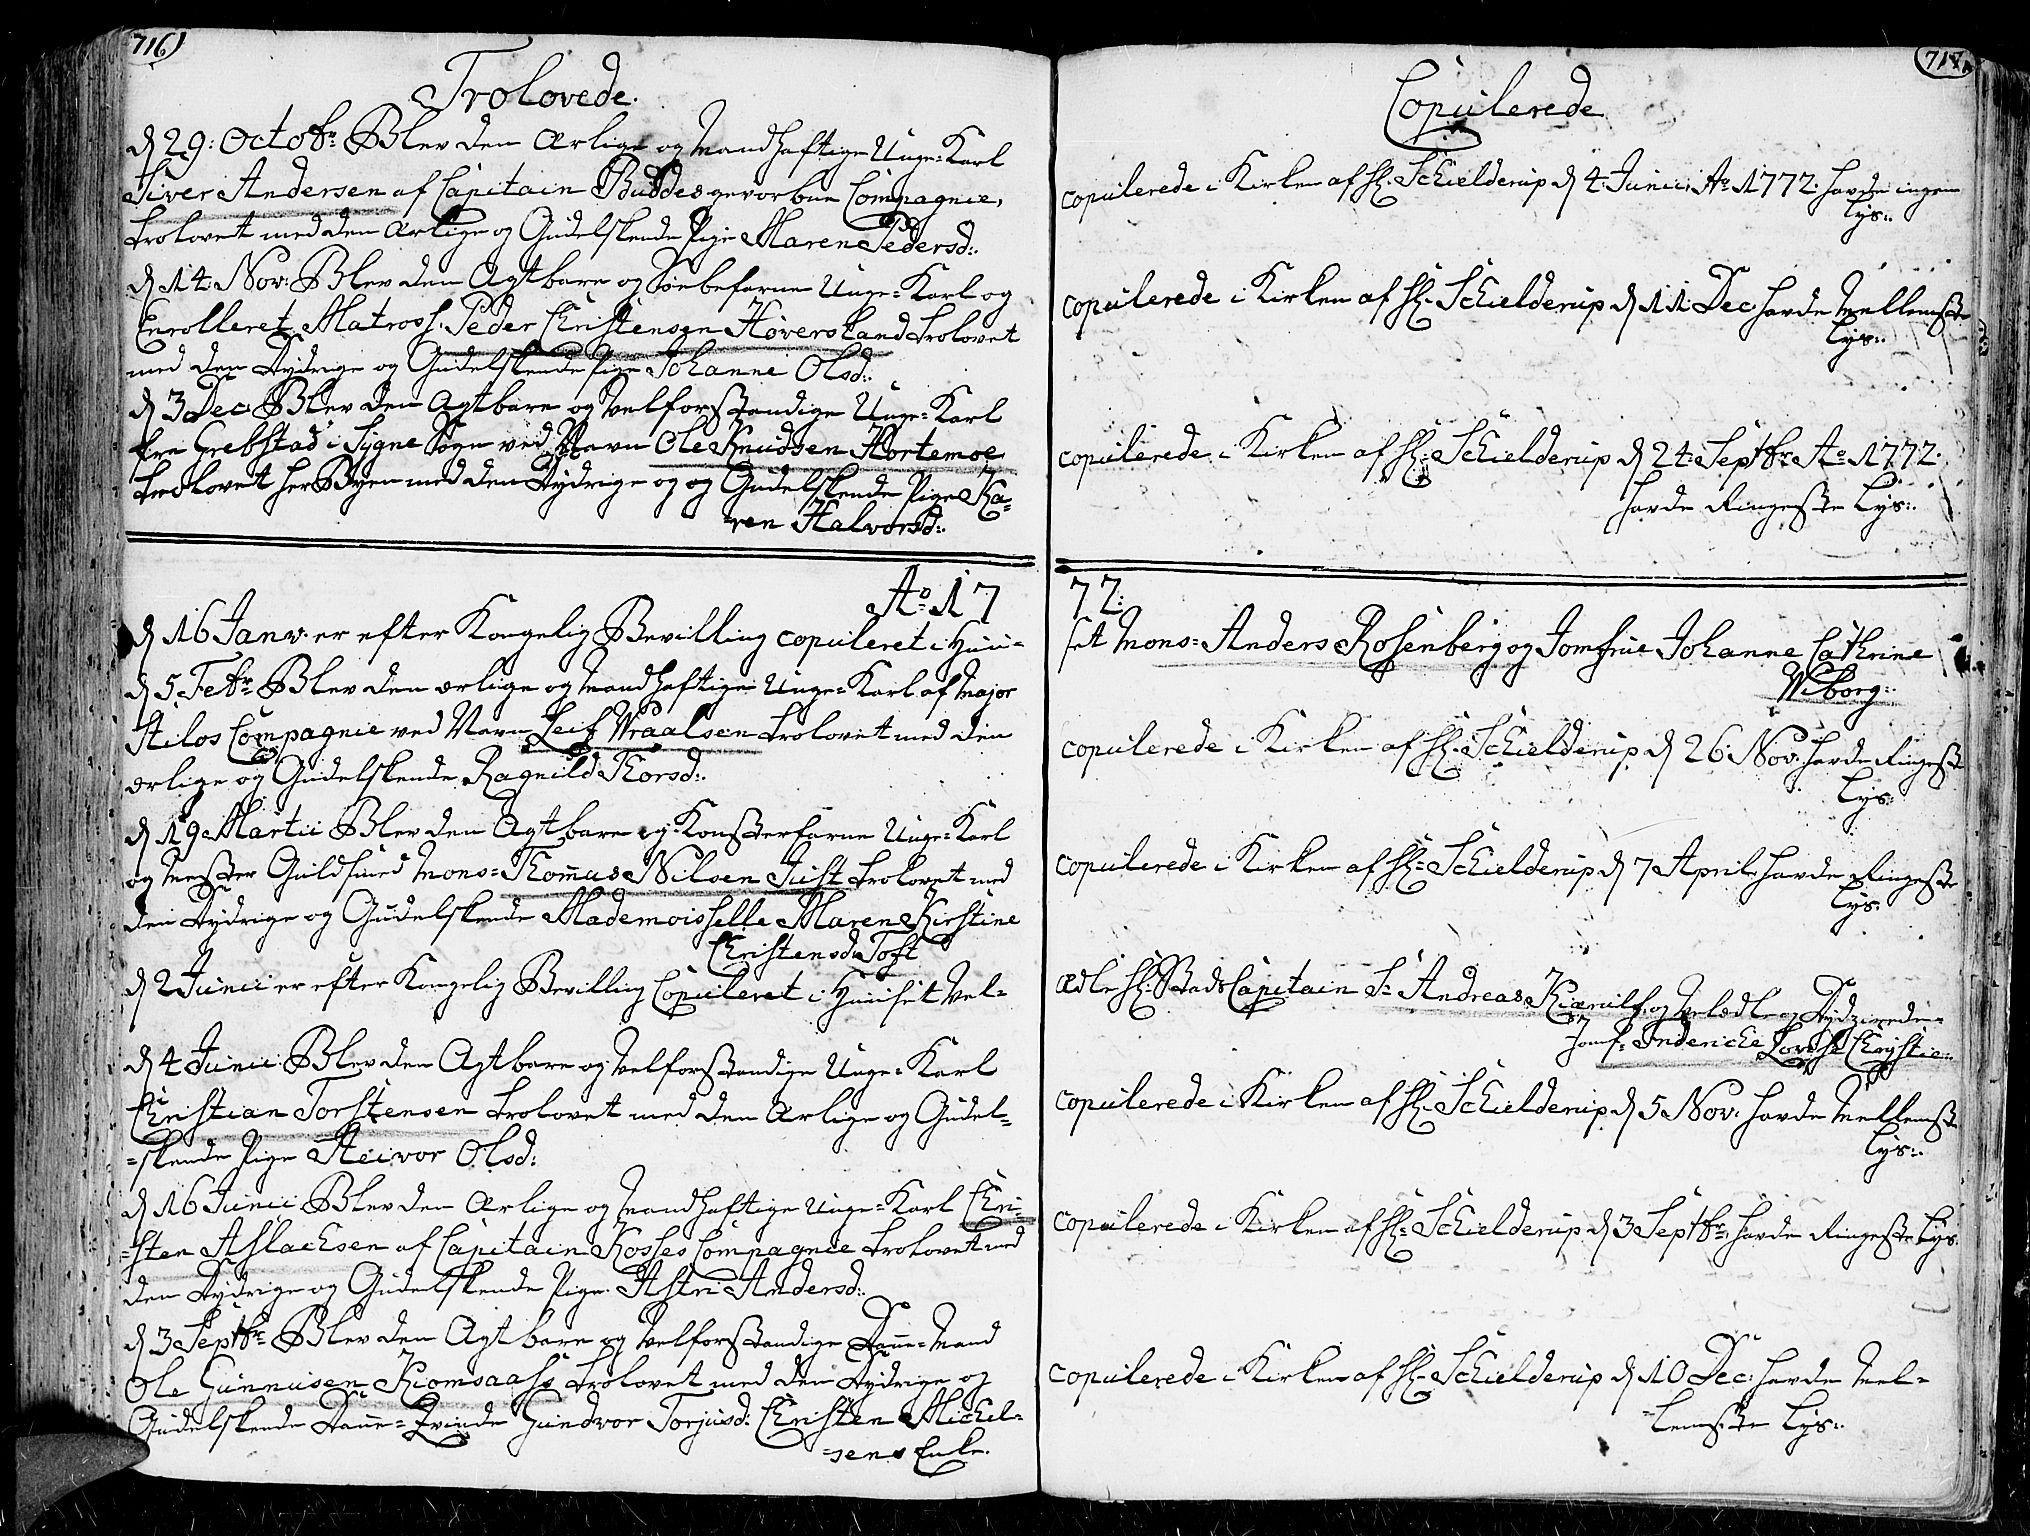 716)
Trolovede.
d 29: Octobr: Blev den ærlige og Mandhaftige Unge-Karl
Siver Andersen af Capitain Buddes gevorbne Compagnie,
trolovet med den ærlige og Gudelskende Pige Maren Pedersd:.
d 14 Nov: Blev den Agtbare og Søebefarne Unge-Karl og
Enrolleret Matross. Peder Christensen Høversland trolovet
med den Dydrige og Gudelskende Pige Johanne Olsd:.
d 3 Dec: Blev den Agtbare og Velforstandige Unge-Karl
fra Grebstad i Sygne Sogn ved Navn Ole Knudsen Hortemoe
trolovet her Byen med den Dydrige og og Gudelskende Pige Ka-
-ren Halvorsd:.
Ao: 17
d 16 Janv: er efter Kongelig Bevilling copuleret i Huu-
d 5 Febr: Blev den ærlige og Mandhaftige Unge-Karl af Major
Stilos Compagnie ved Navn Leif Wraalsen trolovet med den
ærlige og Gudelskende Ragnild Thorsd:.
d 19 Martii Blev den Agtbare og Konsterfarne Unge-Karl
og Mester Guldsmed Mons= Thomas Nilsen Juist trolovet med
den Dydrige og Gudelskende Mademoisselle Maren Kirstine
Christensd: Toft
d 2 Junii er efter Kongelig Bevilling Copuleret i Huuset Vel-
d 4 Junii: Blev den Agtbare og Velforstandige Unge-Karl
Christian Torstensen trolovet med den ærlige og Gudel-
-skende Pige Steivor Olsd:
d 16 Junii Blev den ærlige og Mandhaftige Unge-Karl Chri-
-sten Aslachsen af Capitain Kosses Compagnie trolovet med
den Dydrige og Gudelskende Pige Astri Andersd:.
d 3 Septbr: Blev den Agtbare og Velforstandige Danne-Mand
Ole Gunnusen Kiomsaass trolovet med den Dydrige og
Gudelskende Danne-Qvinde Gundvor Torjusd: Christen Michel-
-sens Enke.
717
Copulerede
copulerede i Kirken af Hr: Schielderup d 4 Junii Ao 1772. havde ingen
Lys:.
copulerede i Kirken af Hr: Schielderup d 11 Dec: havde Mellemste
Lys:.
copulerede i Kirken af Hr: Schielderup d 24 Septbr: Ao 1772.
havde Ringeste Lys:.
72:
set Mons= Anders Rosenberg og Jomfrue Johanne Cathrine
Wiborg:.
copulerede i Kirken af Hr: Schielderup d 26 Nov: havde Ringeste
Lys:
copulerede i Kirken af Hr: Schielderup d 7 April: havde Ringeste
Lys:
ædle Hr: Stads Capitain Sr Andreas Kiærulf, og Velædle og Dydzirede-
Jomf: Inderiche Lovise Chrystie:.
copulerede i Kirken af Hr: Schielderup d 5 Nov: havde Mellemste
Lys:.
copulerede i Kirken af Hr: Schielderup d 3 Septbr: havde Ringeste Lys.
copulerede i Kirken af Hr: Schielderup d 10 Dec: havde Mel-
-lemste Lys:.